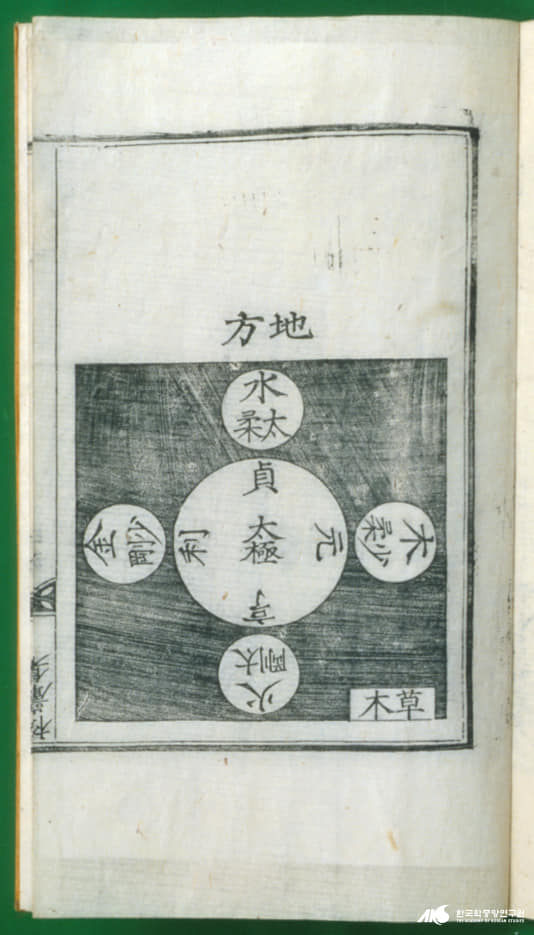 地方
水
太柔
貞
太極
元
亨
利
木
少柔
金
少剛
火
太剛
草木
한국학중앙연구원
THE ACADEMY OF KOREAN STUDIES